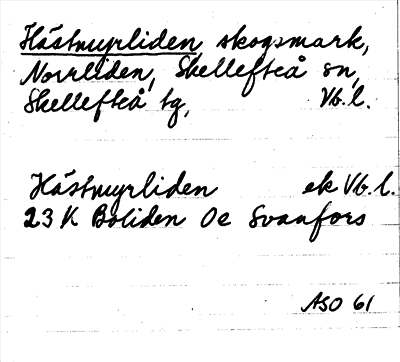 Hästmyrliden, skogsmark,
Norrliden, Skellefteå sn,
Skellefteå tg, Vb. l.
Hästmyrliden ek Vb. l.
23 K Boliden Oe Svanfors
ASO 61